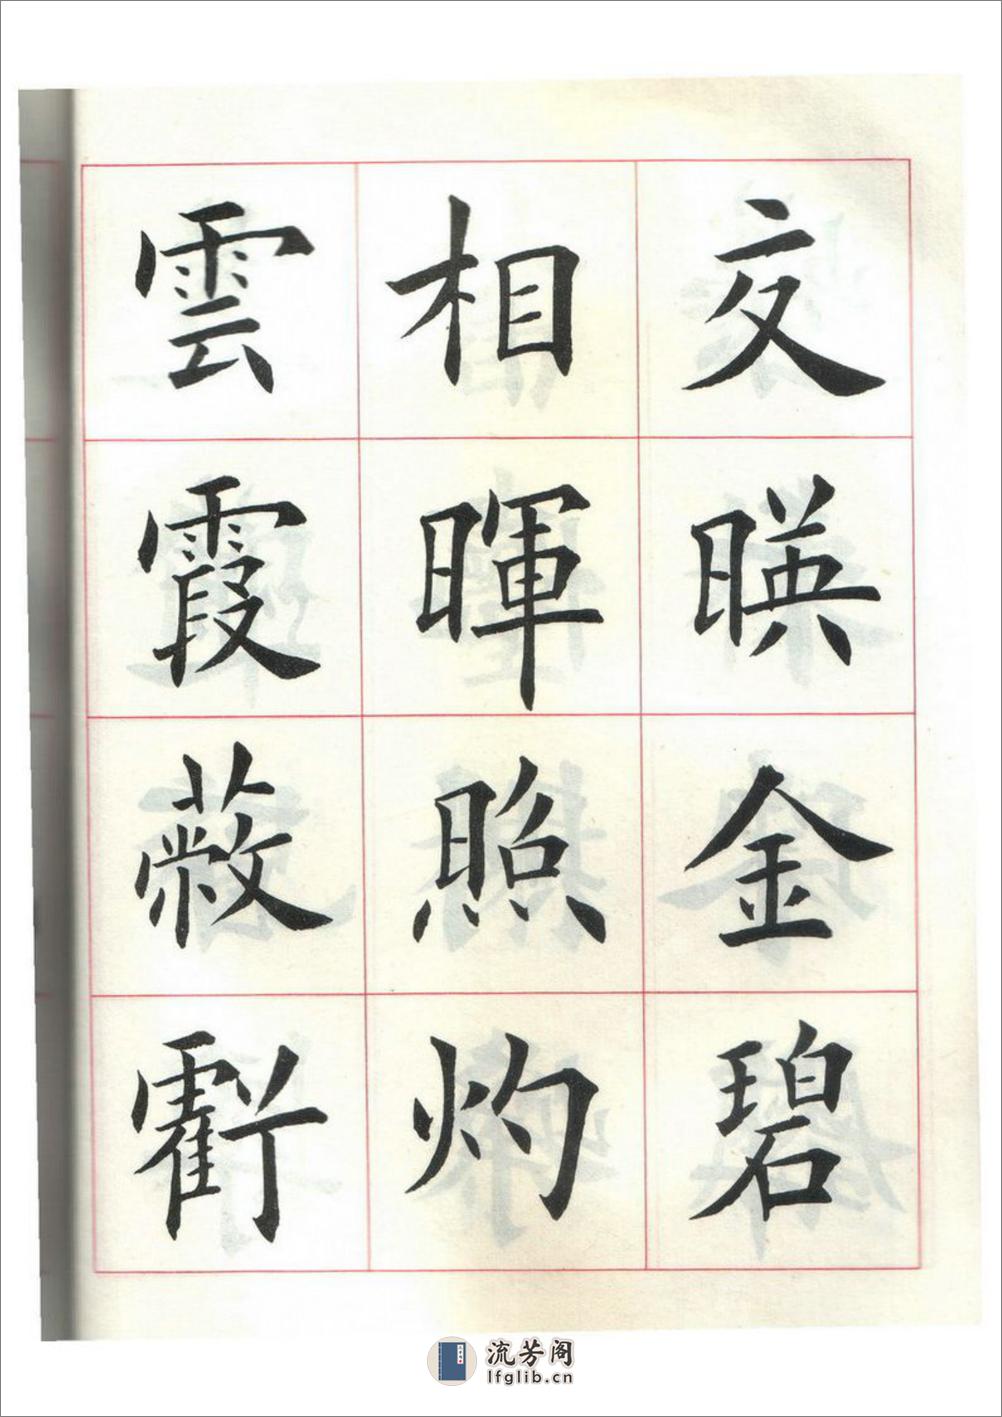 交暎金碧
相暉照灼
雲霞蔽虧
流芳阁
lfglib.cn